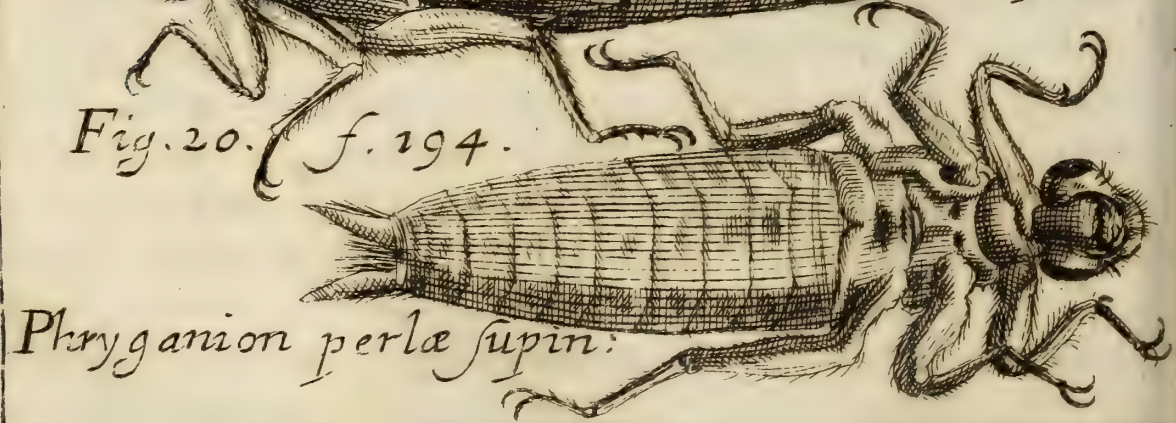 Fig. 20. f. 194.
Phryganion perlæ ſupin: